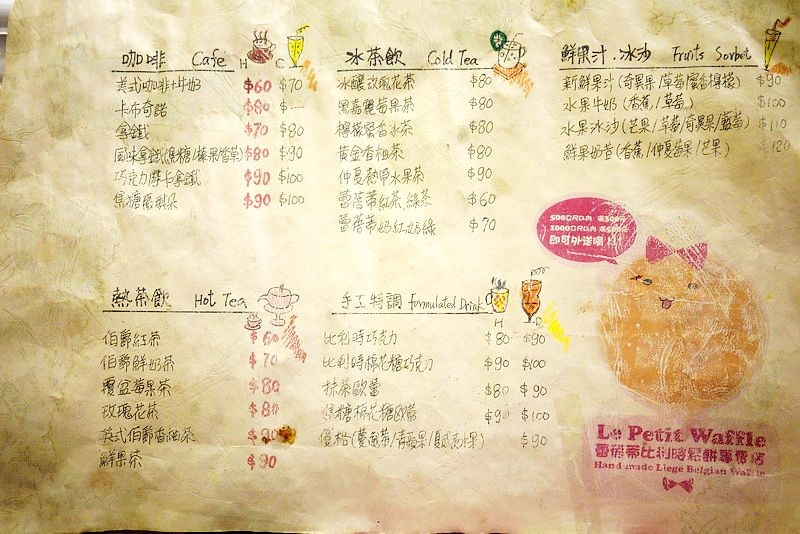 咖啡 Café H C
美式咖啡+牛奶 $60 $70
卡布奇諾 $80 $---
拿鐵 $70 $80
風味拿鐵(焦糖/榛果/香草) $80 $90
巧克力摩卡拿鐵 $90 $100
焦糖瑪琪朵 $90 $100
冰茶飲 Cold Tea
冰釀玫瑰花茶 $80
黑嘉麗莓果茶 $80
檸檬蜜香冰茶 $80
黃金香柚茶 $80
仲夏熱帶水果茶 $90
蕾蓓蒂紅茶.綠茶 $60
蕾蓓蒂奶紅.奶綠 $70
鮮果汁.冰沙 Fruits Sorbet
新鮮果汁(奇異果/草莓/蜜香檸檬) $90
水果牛奶(香蕉/草莓) $100
水果冰沙(芒果/草莓/奇異果/藍莓) $110
鮮果奶昔(香蕉/仲夏莓果/芒果) $120
500公尺以內 滿300元
1000公尺以內 滿500元
即可外送喔!!!
熱茶飲 Hot Tea
伯爵紅茶 $60
伯爵鮮奶茶 $70
覆盆莓果茶 $80
玫瑰花茶 $80
英式伯爵香柚茶 $90
鮮果茶 $90
手工特調 formulated Drink
H
比利時巧克力 $80 $90
比利時棉花糖巧克力 $90 $100
抹茶歐蕾 $80 $90
焦糖棉花糖歐蕾 $90 $100
優格(蔓越莓/青蘋果/夏威夷水果) $90
Le Petit Waffle
蕾蓓蒂比利時鬆餅專賣店
Hand-made Liege Belgian Waffle